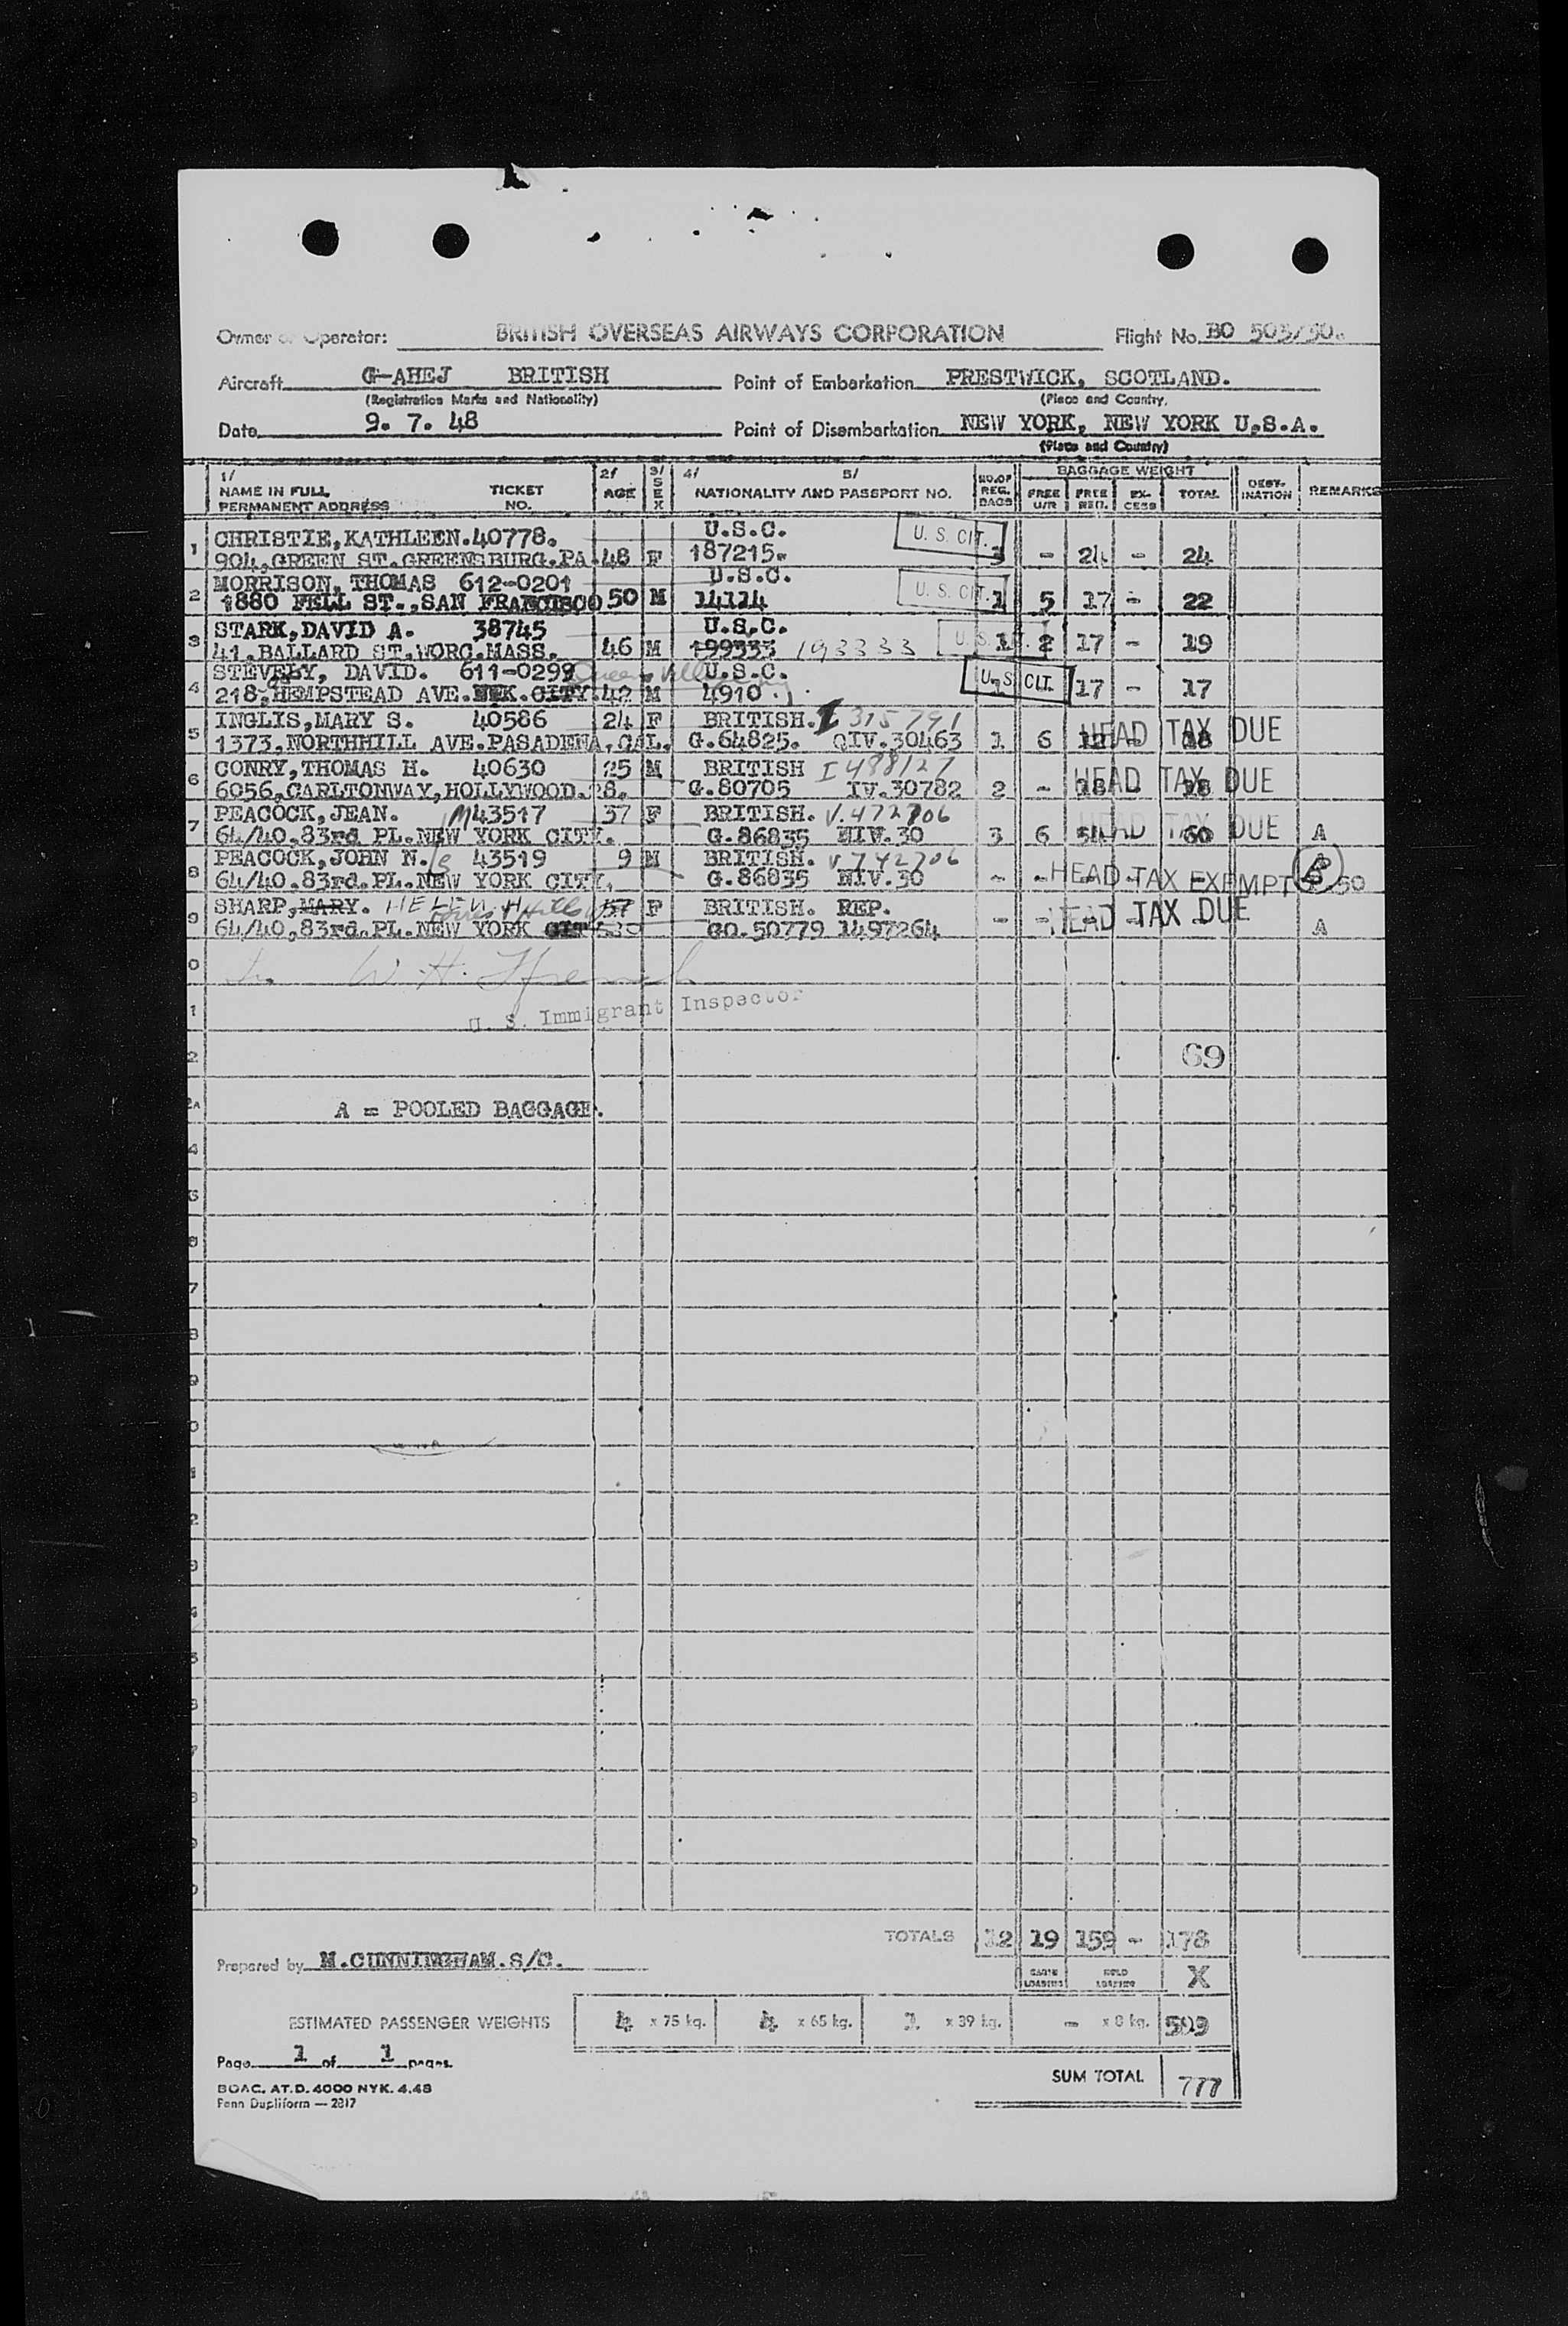 Owner or Operator: BRITISH OVERSEAS AIRWAYS CORPORATION Flight No. BO 503/50
Aircraft G-AHEJ BRITISH Point of Embarkation PRESTWICK, SCOTLAND.
(Registration Marks and Nationality) (Place and Country)
Date 9. 7. 48 Point of Disembarkation NEW YORK, NEW YORK U.S.A.
(Place and Country)
1/ 2/ 3/ 4/ 5/ BAGGAGE WEIGHT
NAME IN FULL TICKET AGE SEX NATIONALITY AND PASSPORT NO. NO.OF REG. BAGS FREE U/R FREE REG. EXCESS TOTAL DESTINATION REMARKS
PERMANENT ADDRESS NO.
1 CHRISTIE,KATHLEEN.40778. U.S.C. U. S. CIT.
904,GREEN ST.GREENSBURG.PA. 48 F 187215. 3 - 24 - 24
2 MORRISON, THOMAS 612-0201 U.S.C. U. S. CIT.
1880 FELL ST.,SAN FRANCISCO 50 M 14114 1 5 17 - 22
3 STARK,DAVID A. 38745 U.S.C. U. S. CIT.
41.BALLARD ST.WORC.MASS. 46 M 199333 193333 1 2 17 - 19
4 STEVELY, DAVID. 611-0299 Queens Village U.S.C. U. S. CIT.
218,HEMPSTEAD AVE.NYK.CITY. 42 M 4910. 1 17 - 17
5 INGLIS,MARY S. 40586 24 F BRITISH. I 315791 HEAD TAX DUE
1373,NORTHHILL AVE.PASADENA,CAL. G.64825. QIV.30463 1 6 12 - 18
6 CONRY,THOMAS H. 40630 25 M BRITISH I488127 HEAD TAX DUE
6056,CARLTONWAY,HOLLYWOOD.28. G.80705 IV.30782 2 - 18 - 18
7 PEACOCK,JEAN. M43517 37 F BRITISH. V.472706 HEAD TAX DUE
64/40,83rd PL.NEW YORK CITY. G.86835 NIV.30 3 6 54 60 A
8 PEACOCK,JOHN N. 43519 9 M BRITISH. V742706
64/40.83rd.PL.NEW YORK CITY. G.86835 NIV.30 - - HEAD TAX EXEMPT
9 SHARP,MARY. HELEN H 57 F BRITISH. REP. HEAD TAX DUE
64/40,83rd.PL.NEW YORK CIT GO.50779 1497264 - - - - - A
W. H. French
U. S. Immigrant Inspector
69
A = POOLED BAGGAGE.
TOTALS 12 19 159 - 178
Prepared by M.CUNNINGHAM.S/C.
CABIN LOADING HOLD LOADING X
ESTIMATED PASSENGER WEIGHTS 4 x 75 kg. 4 x 65 kg. 1 x 39 kg. - x 8 kg. 599
Page 1 of 1 pages.
SUM TOTAL 777
BOAC. AT.D. 4000 NYK. 4.48
Penn Dupliform — 2817